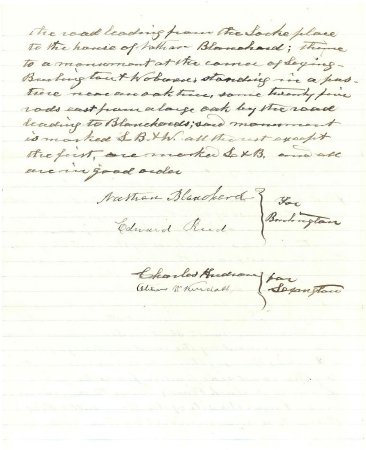 the road leading from the Locke place
to the house of Nathan Blanchard; thence
to a monument at the corner of Lexing-
Burlington & Woburn, standing in a pas-
ture near an oak tree, some twenty five
rods east from a large oak by the road
leading to Blanchards; said monument
is marked L B & W. all the rest except
the first, are marked L & B. and all
are in good order
Nathan Blanchard
For
Burlington
Edward Reed
Charles Hudson
for
Lexington